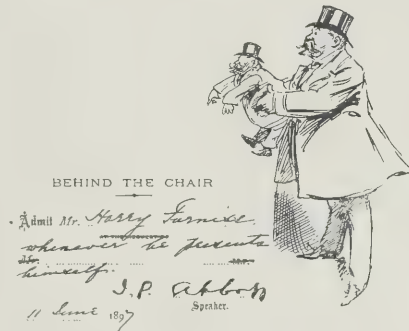 BEHIND THE CHAIR
Admit Mr. Harry Furniss
whenever he presents
himself.
J. P. Abbott
Speaker.
11 June 1897